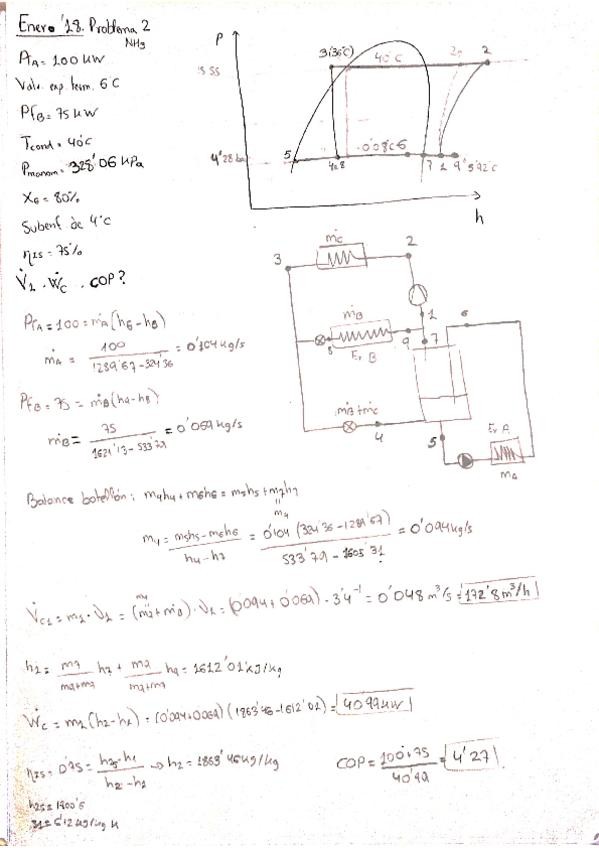 Enero '18. Problema 2
NH3
PfA = 100 kW
Valv. exp. term. 6°C
PfB = 75 kW
Tcond = 40°C
Pmanom = 328'06 kPa
X6 = 80%
Subenf de 4°C
ηIS = 75%
V̇1 . Ẇc . COP?
P
3(36°C)
40°C
2s
2
15'55
4'28 bar
5
4≡8
-0'08°C
6
7
1
9
5'92°C
h
ṁc
3
2
ṁB
1
8
Ev B
9
7
6
ṁB+ṁc
4
5
Ev A
ṁA
PfA = 100 = ṁA(h6-h5)
ṁA = 100 / (1289'67-324'36) = 0'104 kg/s
PfB = 75 = ṁB(h9-h8)
ṁB = 75 / (1621'13-533'79) = 0'069 kg/s
Balance botellón: m4h4 + m6h6 = m5h5 + m7h7
m4
m4 = (m5h5-m6h6) / (h4-h7) = 0'104 (324'36-1289'67) / (533'79-1605'31) = 0'094 kg/s
V̇c1 = m1·v1 = (m7+mB)·v1 = (0'094+0'069)·3'4⁻¹ = 0'048 m³/s = 172'8 m³/h
m4
h1 = m7 / (m9+m7) h7 + m9 / (m9+m7) h9 = 1612'01 kJ/kg
Ẇc = m1(h2-h1) = (0'094+0'069)(1863'46-1612'01) = 40'99 kW
ηIS = 0'75 = (h2s-h1) / (h2-h1) → h2 = 1863'46 kJ/kg
h2s = 1800'6
COP = (100+75) / 40'99 = 4'27